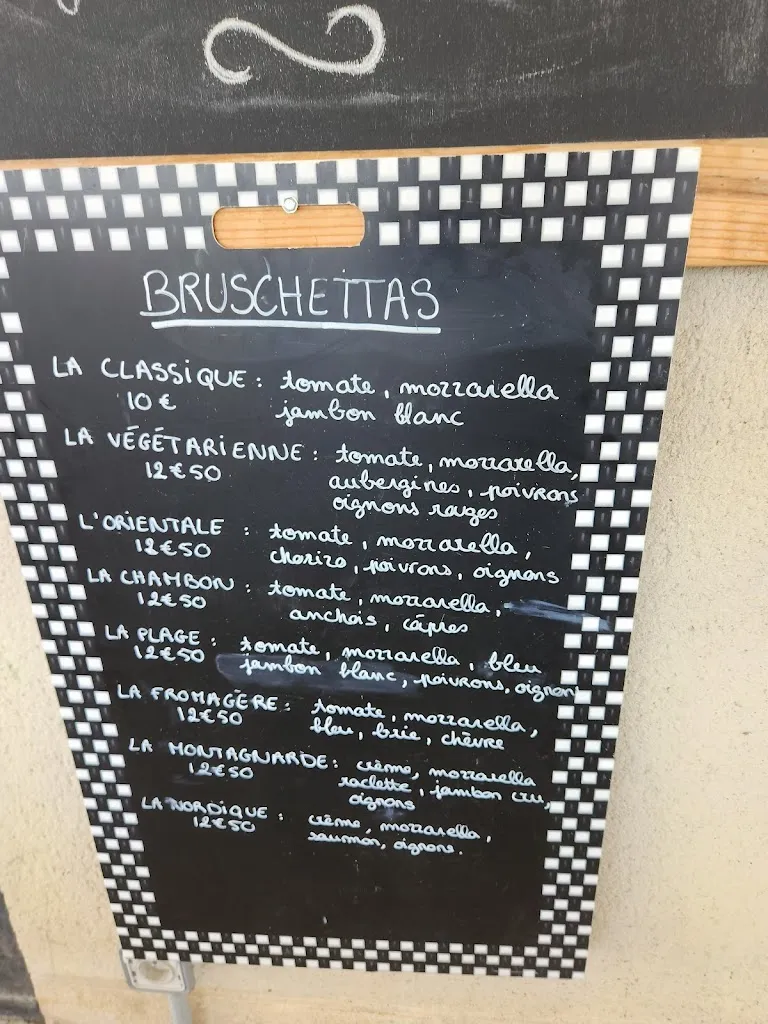 BRUSCHETTAS
LA CLASSIQUE : tomate, mozzarella
10 € jambon blanc
LA VÉGÉTARIENNE : tomate, mozzarella,
12€50 aubergines, poivrons
oignons rouges
L'ORIENTALE : tomate, mozzarella,
12€50 chorizo, poivrons, oignons
LA CHAMBON : tomate, mozzarella,
12€50 anchois, câpres
LA PLAGE : tomate, mozzarella, bleu
12€50 jambon blanc, poivrons, oignons
LA FROMAGÈRE : tomate, mozzarella,
12€50 bleu, brie, chèvre
LA MONTAGNARDE : crème, mozzarella
12€50 raclette, jambon cru,
oignons
LA NORDIQUE : crème, mozzarella,
12€50 saumon, oignons.